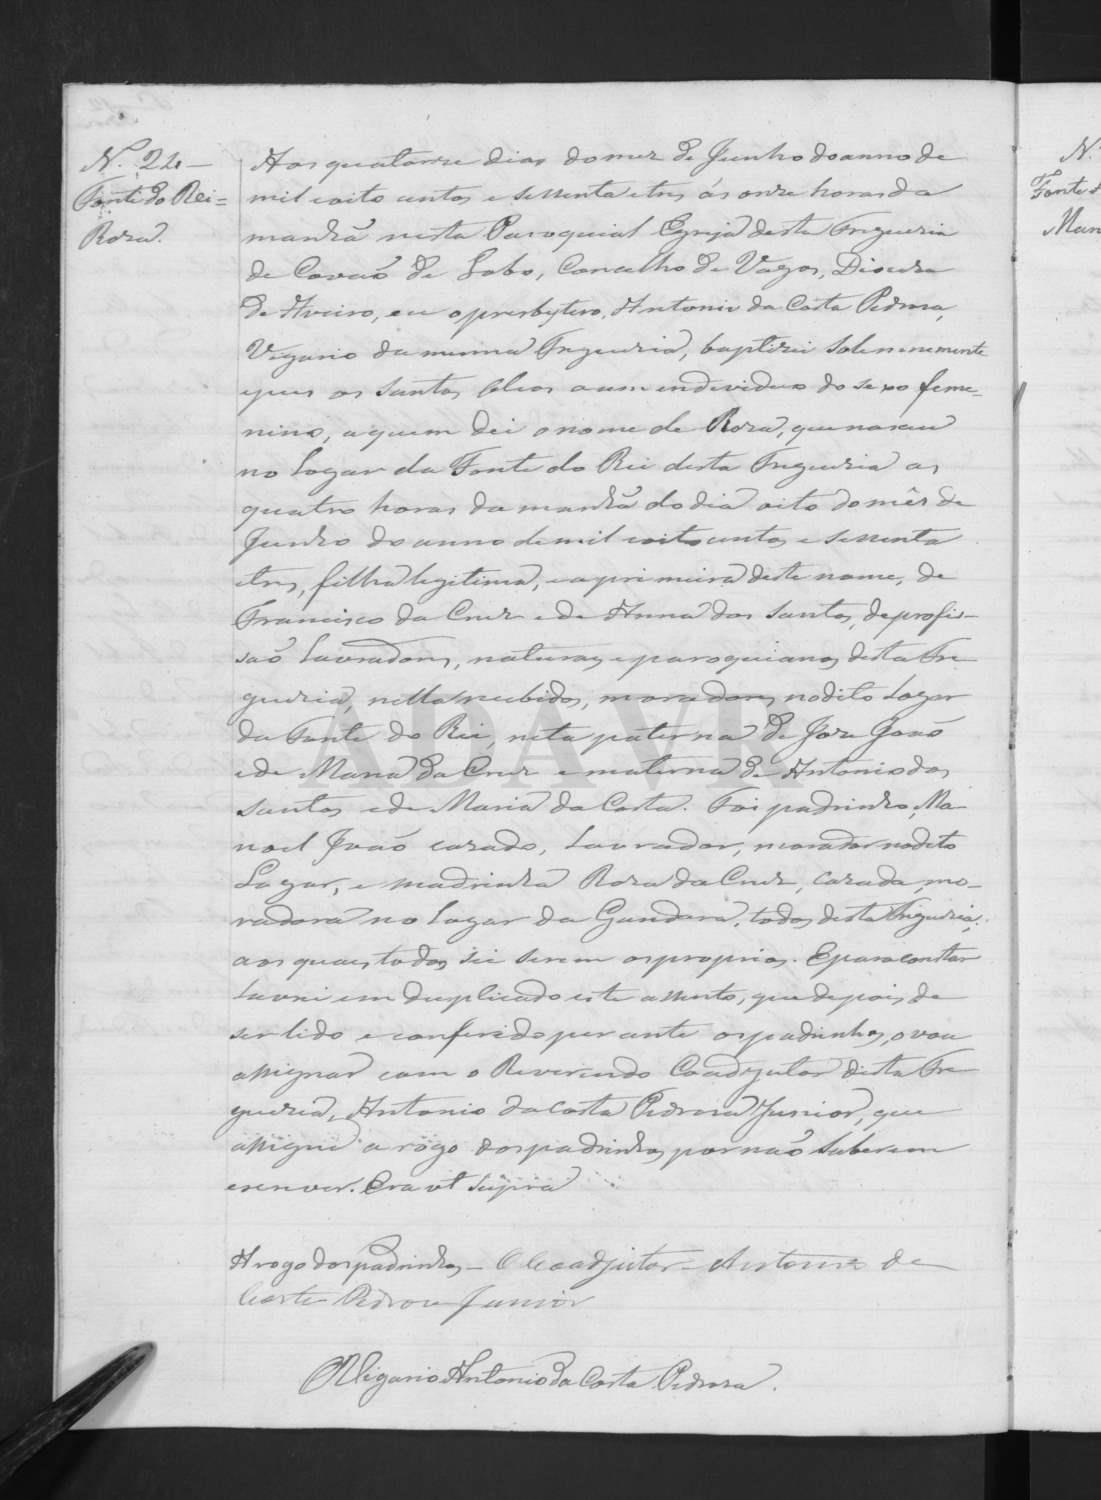 N.º 24 —
Fonte do Rei =
Roza.
Aos quatorze dias do mez de Junho do anno de
mil eoito centos e sessenta etres ás onze horas da
manhã nesta Paroquial Egreja desta Freguezia
de Covão de Lobo, Concelho de Vagos, Diocese
de Aveiro, eu o presbytero, Antonio da Costa Pedroza,
Vigario da mesma Freguezia, baptizei solemnemente
epus os santos Oleos aum endeviduo do sexo feme-
nino, aquem dei onome de Roza, que nasceu
no Logar da Fonte do Rei desta Freguezia as
quatro horas da manhã do dia oito do mês de
Junho do anno de mil eoito centos e sessenta
etres, filha legitima, eaprimeira deste nome, de
Francisco da Cruz e de Anna dos Santos, de profis-
são lavradores, naturaes eparoquianos desta Fre
guezia, nella recebidos, moradores no dito Logar
da Fonte do Rei, neta paterna de Joze João
e de Maria da Cruz e materna de Antonio dos
Santos e de Maria da Costa. Foi padrinho, Ma
noel João cazado, Lavrador, morador nodito
Logar, e madrinha Roza da Cruz, cazada, mo-
radora no Logar da Gandara, todos desta Freguezia,
aos quaes todos sei serem os proprios. E para constar
lavrei em duplicado este assento, que depois de
ser lido e conferido perante os padrinhos, o vou
assignar com o Reverendo Coadjutor desta Fre
guezia, Antonio da Costa Pedroza Junior, que
assigna a rogo dos padrinhos por não saberem
escrever. Era ut supra
A rogo dos padrinhos — O Coadjutor — Antonio da
Costa Pedroza Junior
O Vigario Antonio da Costa Pedroza.
N.
Fonte d
Man
ADAVR